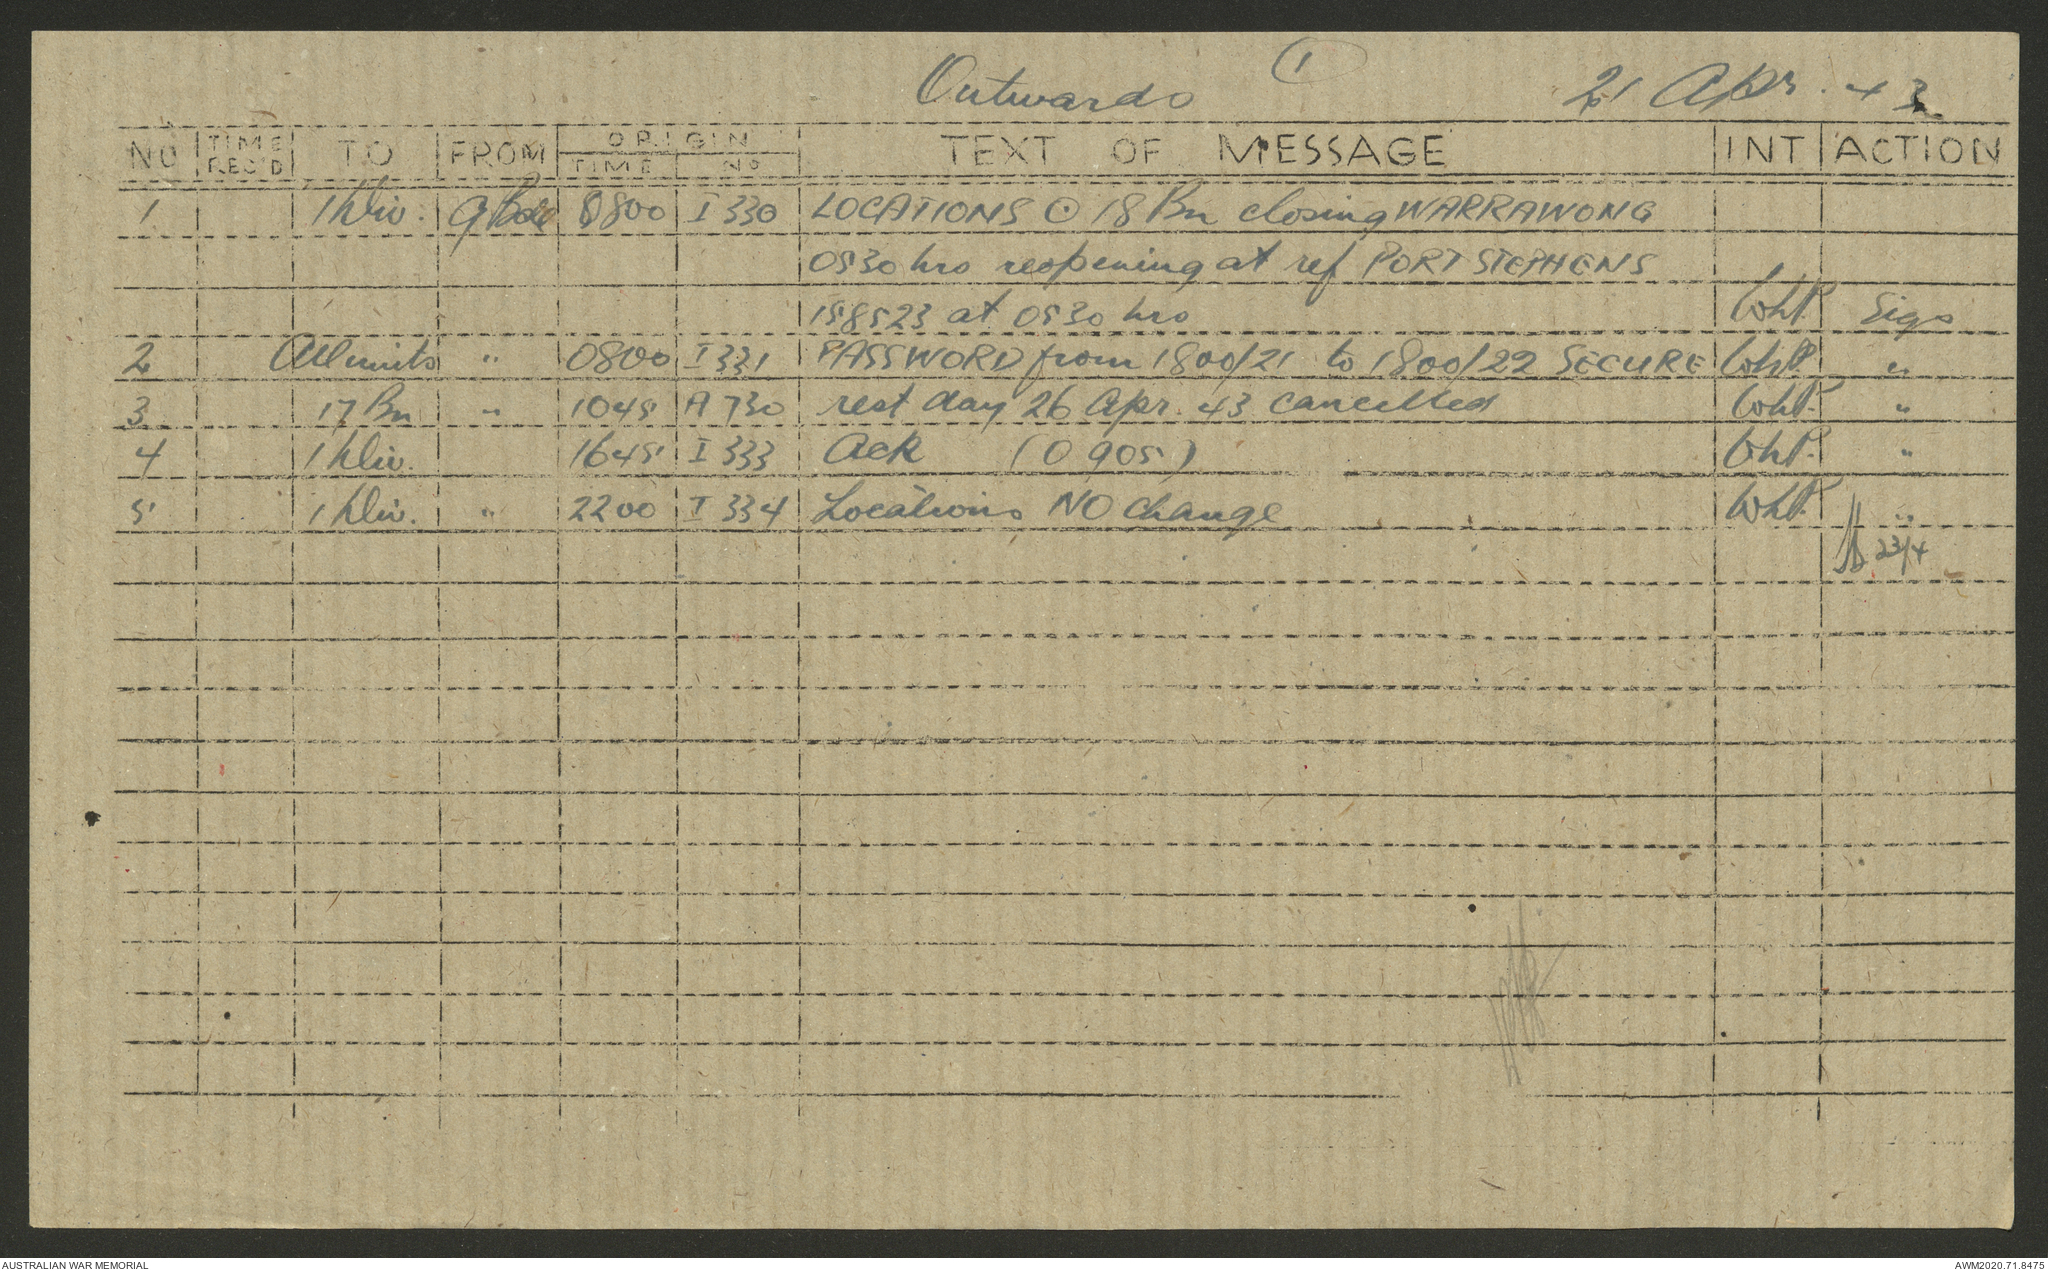 Outwards 1 21 Apr. 43
NO TIME REC'D TO FROM ORIGIN TIME NO TEXT OF MESSAGE INT ACTION
1 1 Div. 9 Bde 0800 I 330 LOCATIONS ⊙ 18 Bn closing WARRAWONG
0530 hrs reopening at ref PORT STEPHENS
158523 at 0530 hrs WhP. Sigs
2 All units " 0800 I 331 PASSWORD from 1800/21 to 1800/22 SECURE WhP. "
3 17 Bn " 1045 A 730 rest day 26 Apr. 43 cancelled WhP. "
4 1 Div. 1645 I 333 Ack (O 905) WhP. "
5 1 Div. " 2200 I 334 Locations NO change WhP. "
23/4
AUSTRALIAN WAR MEMORIAL AWM2020.71.8475